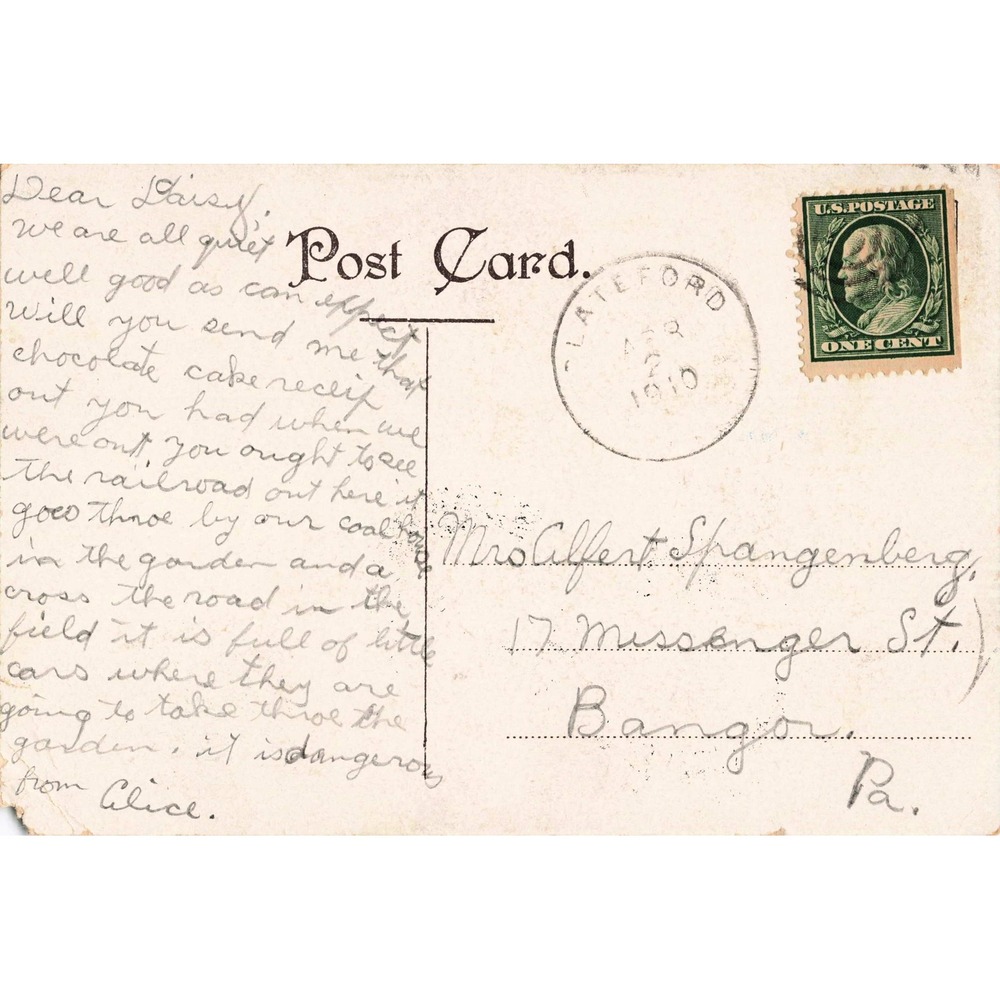 Dear Daisy,
we are all quiet
well good as can expect
Will you send me that
chocolate cake receip
out you had when we
were out, you ought to see
the railroad out here it
goes throe by our coal house
in the garden and a
cross the road in the
field it is full of little
cars where they are
going to take throe the
garden. it is dangerous
from Alice.
Post Card.
SLATEFORD
APR
2
1910
U.S. POSTAGE
ONE CENT
Mrs Alfert Spangenberg,
17 Messenger St.
Bangor.
Pa.